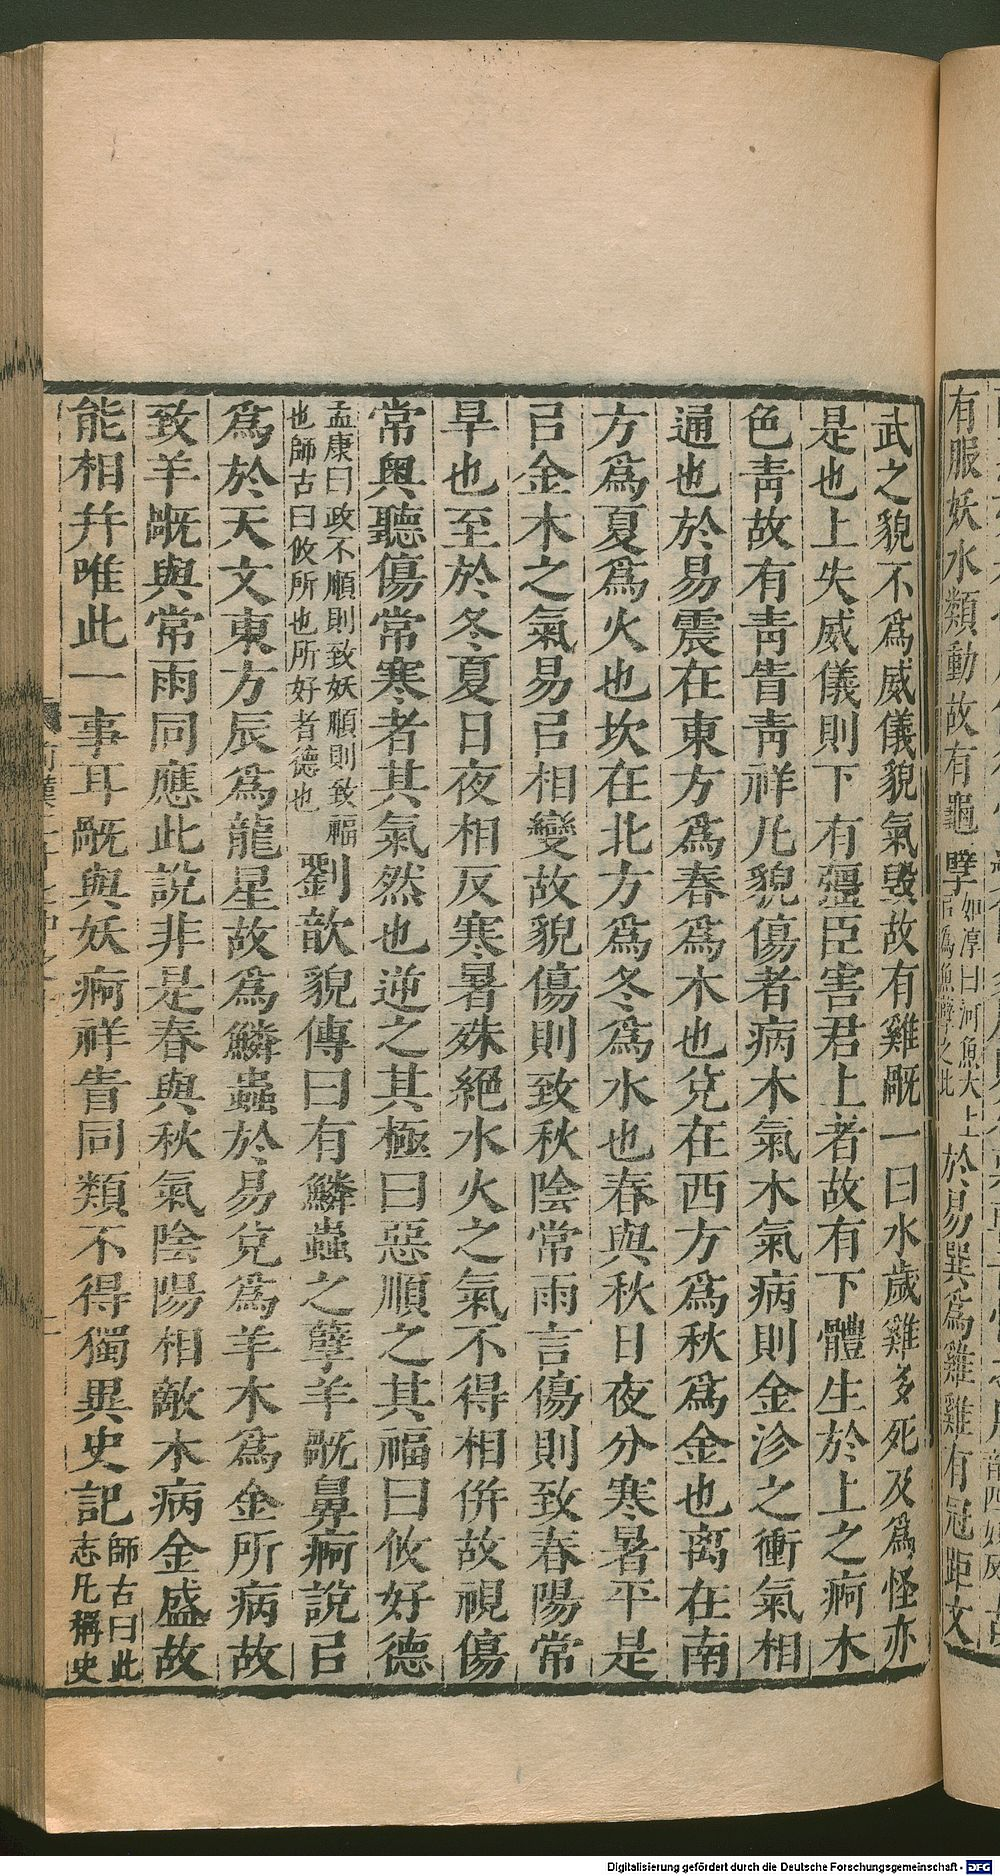 有服妖水類動故有龜孽於易巽爲雞雞有冠距文
武之貌不爲威儀貌氣毀故有雞旤一曰水歲雞多死及爲怪亦
是也上失威儀則下有彊臣害君上者故有下體生於上之痾木
色靑故有靑眚靑祥凡貌傷者病木氣木氣病則金沴之衝氣相
通也於易震在東方爲春爲木也兌在西方爲秋爲金也离在南
方爲夏爲火也坎在北方爲冬爲水也春與秋日夜分寒暑平是
㠯金木之氣易㠯相變故貌傷則致秋陰常雨言傷則致春陽常
旱也至於冬夏日夜相反寒暑殊絕水火之氣不得相倂故視傷
常奧聽傷常寒者其氣然也逆之其極曰惡順之其福曰攸好德
孟康曰政不順則致妖順則致福
也師古曰攸所也所好者德也
劉歆貌傳曰有鱗蟲之孽羊旤鼻痾說㠯
爲於天文東方辰爲龍星故爲鱗蟲於易兌爲羊木爲金所病故
致羊旤與常雨同應此說非是春與秋氣陰陽相敵木病金盛故
能相幷唯此一事耳旤與妖痾祥眚同類不得獨異史記
師古曰此
志凡稱史
Digitalisierung gefördert durch die Deutsche Forschungsgemeinschaft - DFG